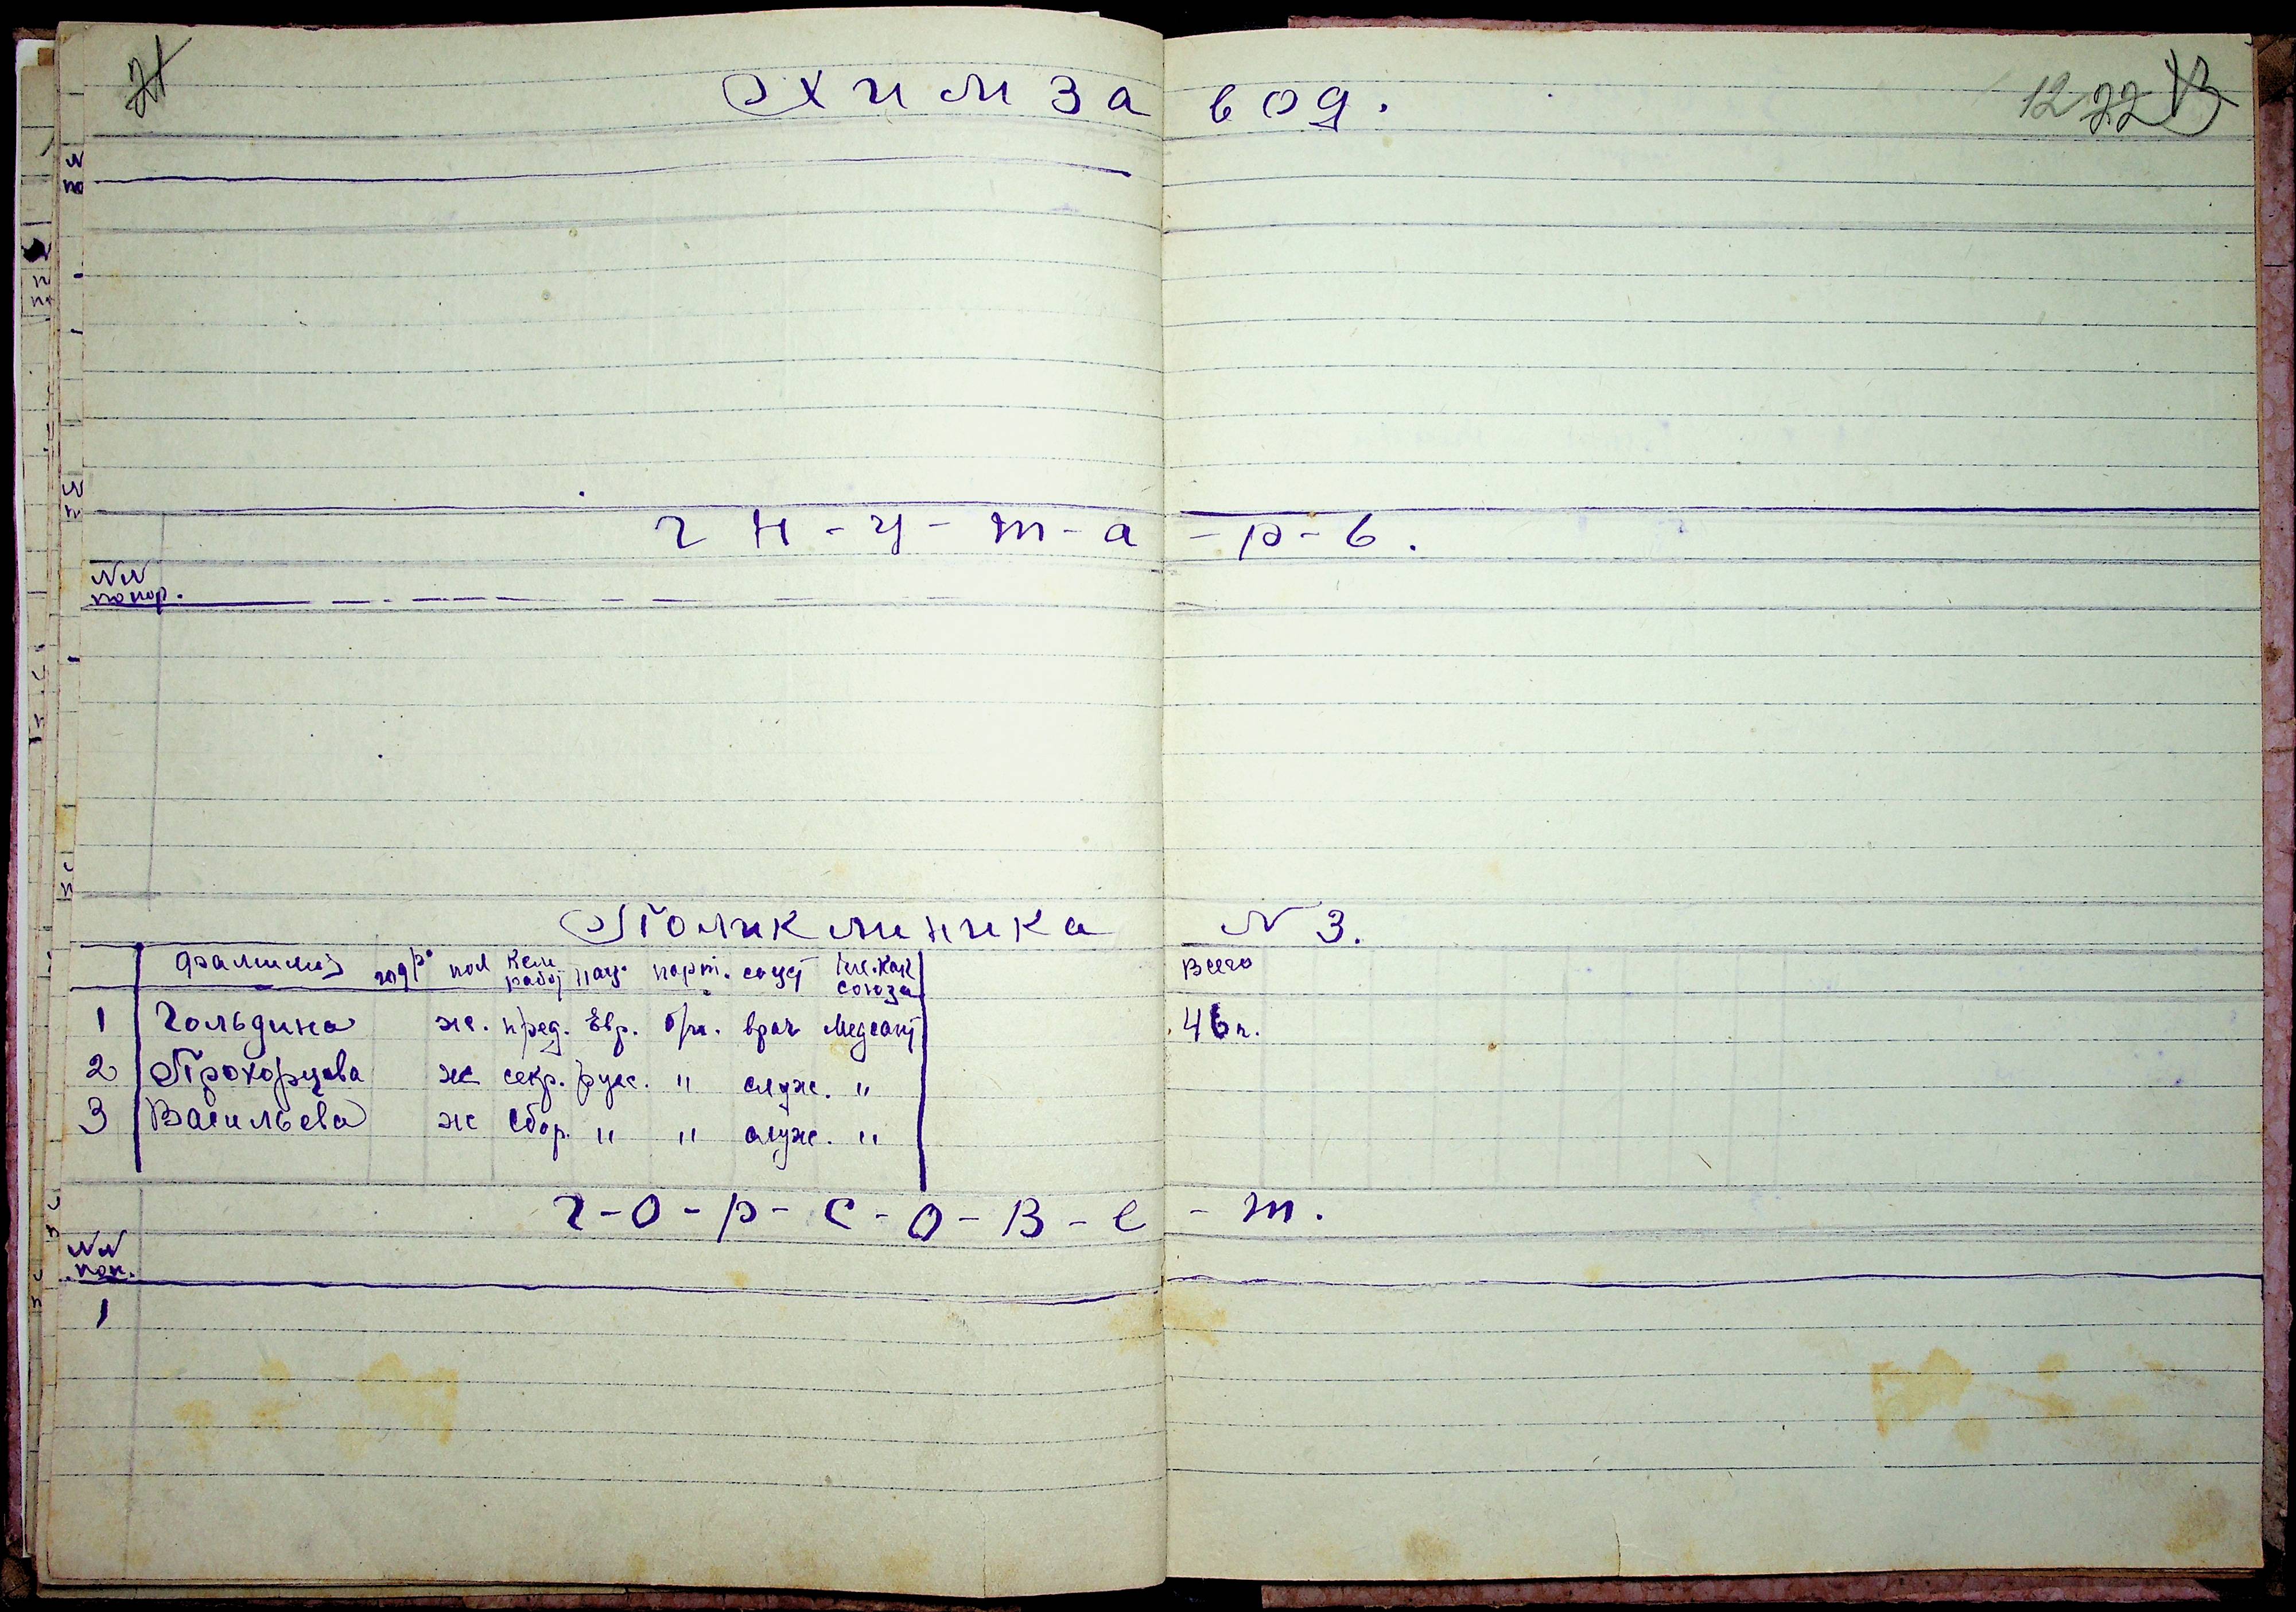 21 12 22 13
Химзавод.
Г Н - У - т - а - р - в.
№№
по пор.
Поликлиника № 3.
фамилия год р. пол кем работ нац. парт. соц. член. как. союза Всего
1 Гольдина ж. пред. Евр. б/п. врач Медсант 46 ч.
2 Прохорцева ж секр. русс. " служ. "
3 Васильева ж сбор. " " служ. "
Г - О - р - С - О - В - е - т.
№№
поп.
1